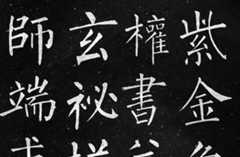 紫金
權書
玄祕
師端